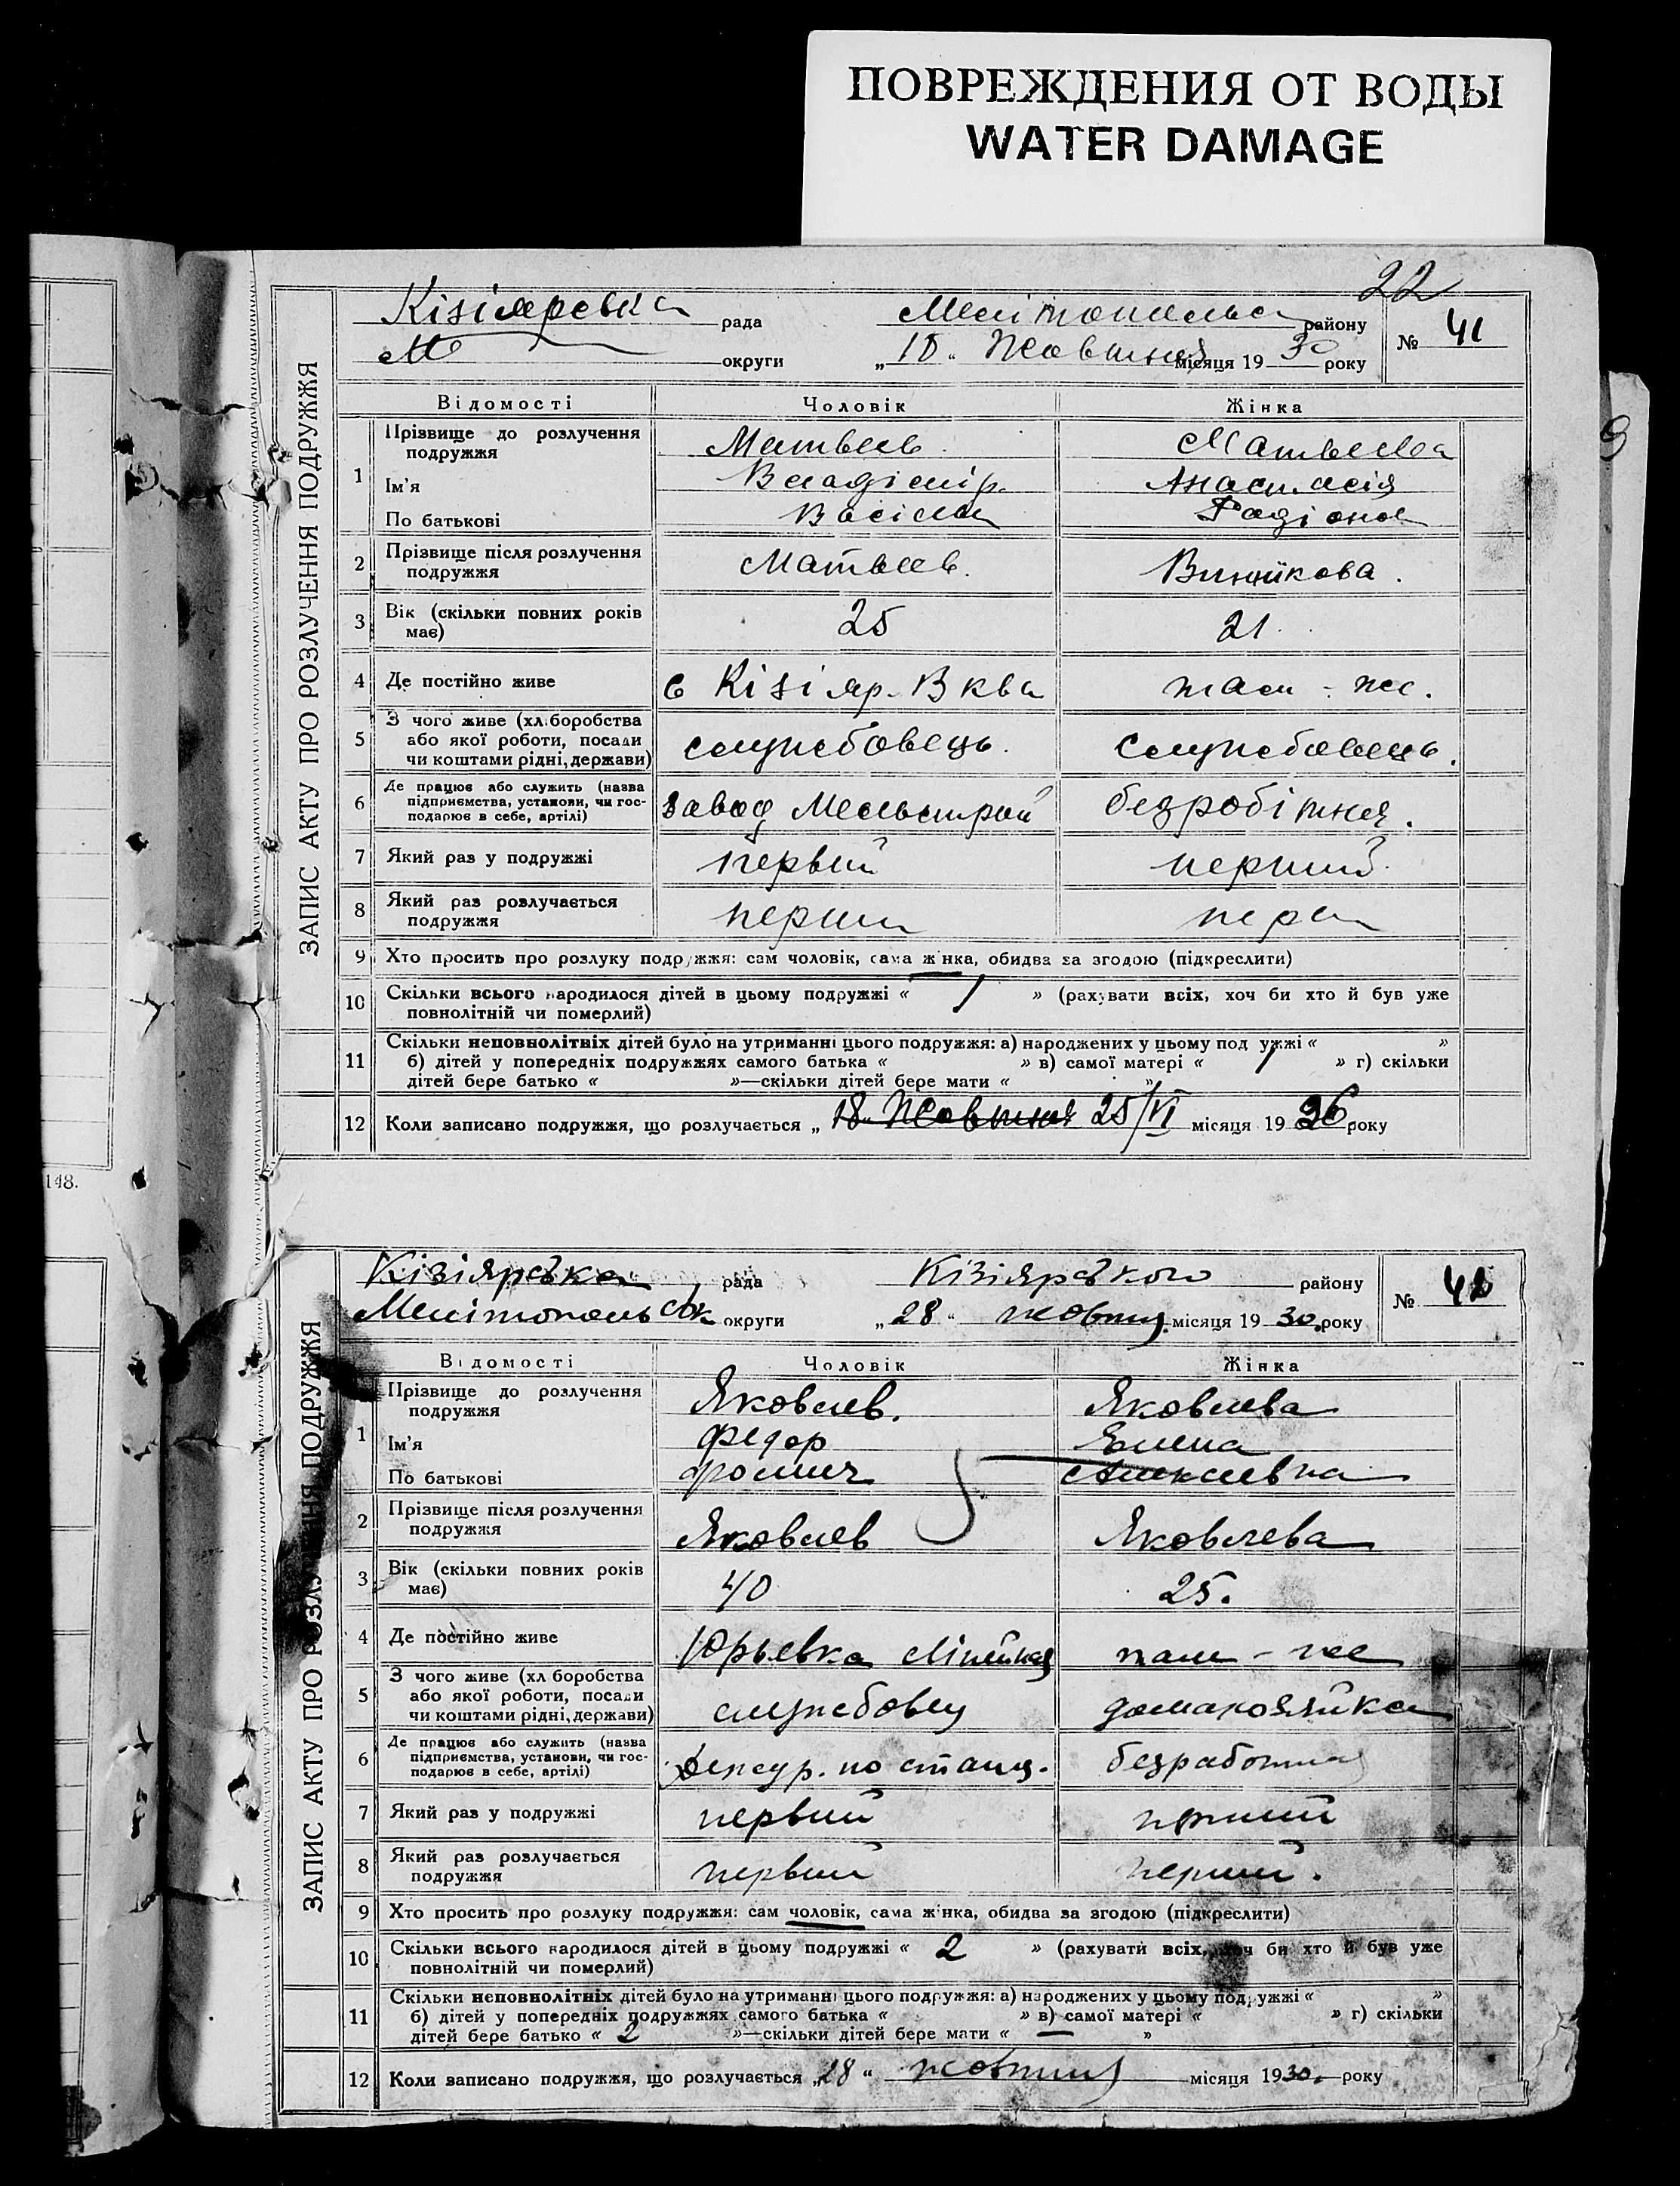 ПОВРЕЖДЕНИЯ ОТ ВОДЫ
WATER DAMAGE
22
148.
ЗАПИС АКТУ ПРО РОЗЛУЧЕННЯ ПОДРУЖЖЯ
Кізіярська рада Мелітопольськ району № 41
М округи „ 18 “ Жовтня місяця 19 30 року
Відомості Чоловік Жінка
1 Прізвище до розлучення подружжя Матвеев. Матвеева
Ім'я Владімір. Анастасія
По батькові Васільов Радіонов
2 Прізвище після розлучення подружжя Матвеев. Виннікова.
3 Вік (скільки повних років має) 25 21.
4 Де постійно живе с Кізіяр. В ква там-же.
5 З чого живе (хліборобства або якої роботи, посади чи коштами рідні, держави) служебовець. служебовець.
6 Де працює або служить (назва підприємства, установи, чи господарює в себе, артілі) завод Мельстрой безробітная.
7 Який раз у подружжі первий перший.
8 Який раз розлучається подружжя перши пер
9 Хто просить про розлуку подружжя: сам чоловік, сама жінка, обидва за згодою (підкреслити)
10 Скільки всього народилося дітей в цьому подружжі « 1 » (рахувати всіх, хоч би хто й був уже
повнолітній чи померлий)
11 Скільки неповнолітніх дітей було на утриманні цього подружжя: а) народжених у цьому подружжі « »
б) дітей у попередніх подружжях самого батька « » в) самої матері « 1 » г) скільки
дітей бере батько « »—скільки дітей бере мати « »
12 Коли записано подружжя, що розлучається „ 18 “ Жовтня 25/VI місяця 19 26 року
ЗАПИС АКТУ ПРО РОЗЛУЧЕННЯ ПОДРУЖЖЯ
Кізіярська рада Кізіярського району № 42
Мелітопольськ округи „ 28 “ жовтня місяця 19 30. року
Відомості Чоловік Жінка
1 Прізвище до розлучення подружжя Яковлев. Яковлева
Ім'я Федор Елена
По батькові Фомич Алексеевна
2 Прізвище після розлучення подружжя Яковлев Яковлева
3 Вік (скільки повних років має) 40 25.
4 Де постійно живе Юрьевка Лінейная там-же
5 З чого живе (хліборобства або якої роботи, посади чи коштами рідні, держави) служебовец домахозяйка
6 Де працює або служить (назва підприємства, установи, чи господарює в себе, артілі) Дежур. по станц. безработная
7 Який раз у подружжі первий перший
8 Який раз розлучається подружжя первий перший.
9 Хто просить про розлуку подружжя: сам чоловік, сама жінка, обидва за згодою (підкреслити)
10 Скільки всього народилося дітей в цьому подружжі « 2 » (рахувати всіх, хоч би хто й був уже
повнолітній чи померлий)
11 Скільки неповнолітніх дітей було на утриманні цього подружжя: а) народжених у цьому подружжі « »
б) дітей у попередніх подружжях самого батька « » в) самої матері « » г) скільки
дітей бере батько « 2 »—скільки дітей бере мати « — »
12 Коли записано подружжя, що розлучається „ 28 “ жовтня місяця 19 30. року